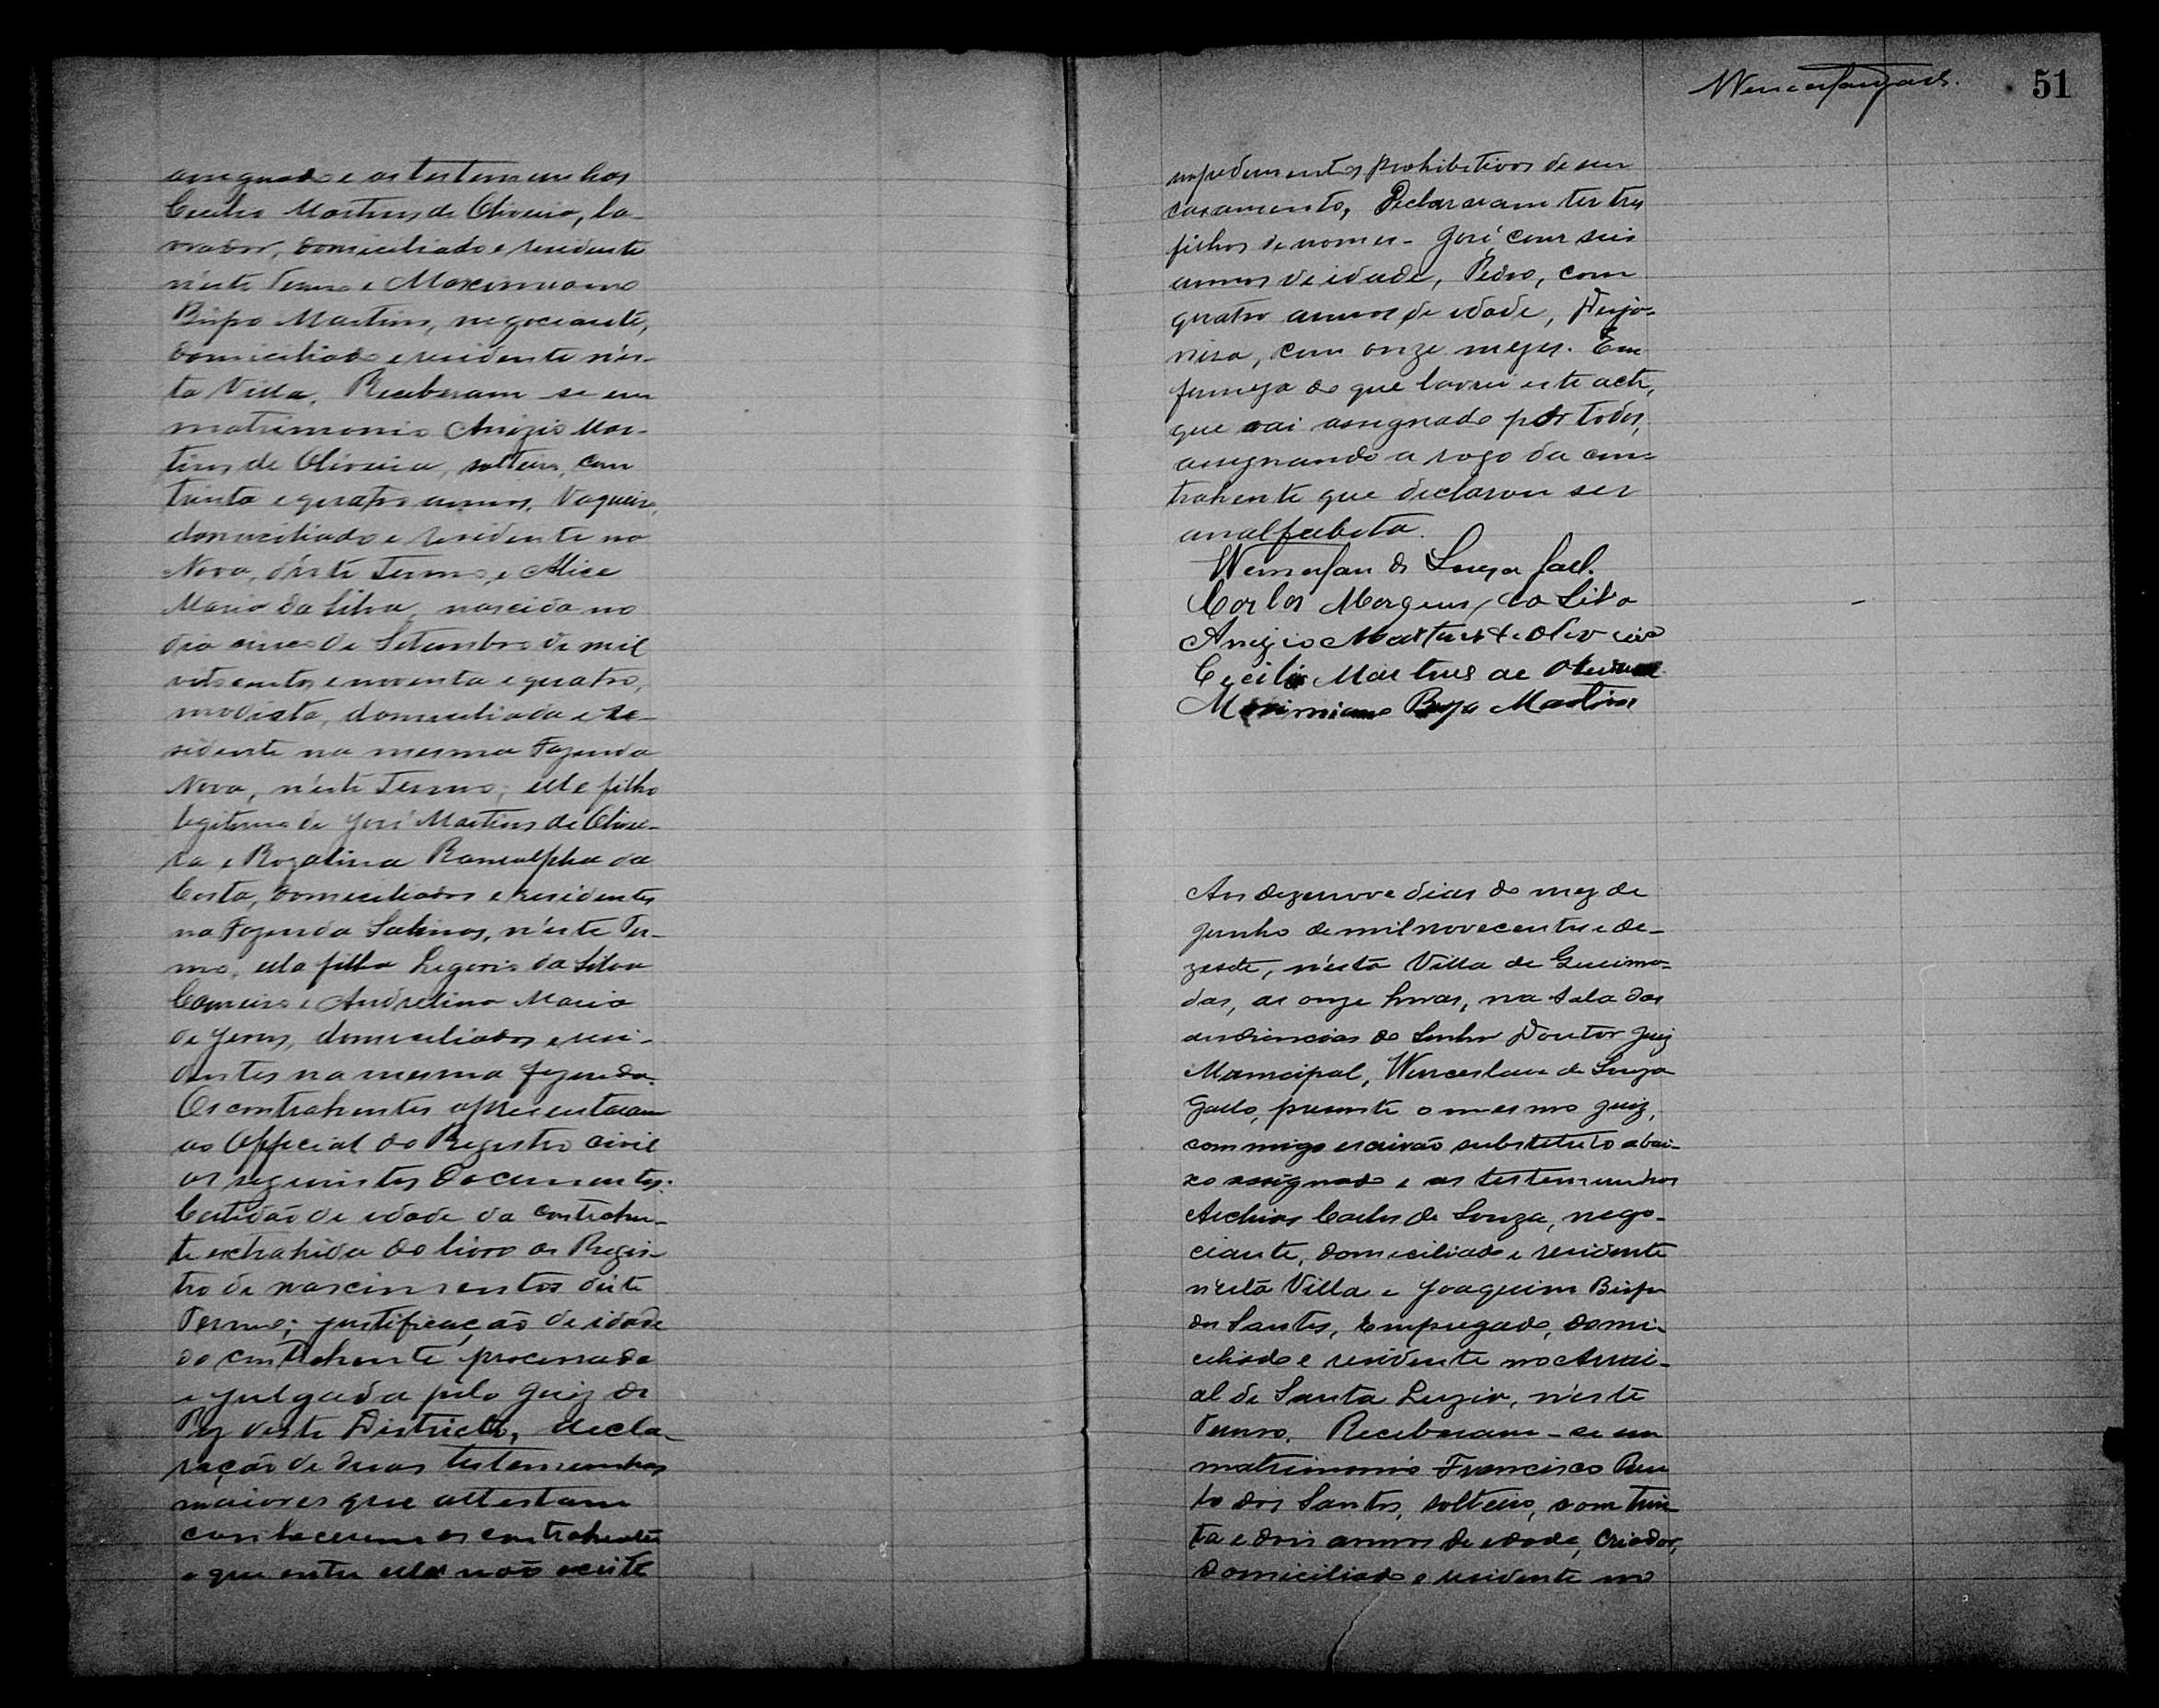 assignado e as testemunhas
Cecilio Martins de Oliveira, la-
vrador, domiciliado e residente
n'este Termo e Maximiano
Bispo Martins, negociante,
domiciliado e residente n'es-
ta Villa. Receberam-se em
matrimonio Anizio Mar-
tins de Oliveira, solteiro, com
trinta e quatro annos, Vaqueiro,
domiciliado e residente na
Nova, d'este Termo, e Alice
Maria da Silva, nascida no
dia cinco de Setembro de mil
oitocentos e noventa e quatro,
modista, domiciliada e re-
sidente na mesma Fazenda
Nova, n'este Termo; elle filho
legitimo de José Martins de Olivei-
ra e Rozalina da
Costa, domiciliados e residentes
na Fazenda Salinas, n'este Ter-
mo, ella filha da Silva
Carneiro e Andrelina Maria
de Jesus, domiciliados e resi-
dentes na mesma fazenda.
Os contrahentes apresentaram
ao Official do Registro civil
os seguintes documentos:
Certidão de idade da contrahen-
te extrahida do livro de Regis-
tro de nascimentos deste
Termo; justificação de idade
do contrahente processada
e julgada pelo Juiz de
Paz deste Districto, decla-
ração de duas testemunhas
maiores que attestam
conhecerem os contrahentes
e que entre elles não existe
51
impedimentos prohibitivos de seu
casamento, Declararam ter tres
filhos de nomes - José, com seis
annos de idade, Pedro, com
quatro annos de idade,
com onze mezes. Em
firmeza do que lavrei este acto,
que vai assignado por todos,
assignando a rogo da con-
trahente que declarou ser
analfabeta.
de Souza
Carlos da Silva
Anizio Martins de Oliveira
Cecilio Martins de Oliveira
Maximiano Bispo Martins
Aos dezenove dias do mez de
Junho de mil novecentos e de-
zesete, n'esta Villa de Queima-
das, as onze horas, na sala das
audiencias do Senhor Doutor Juiz
Municipal, Wenceslau de Souza
presente o mesmo juiz,
commigo escrivão substituto abai-
xo assignado e as testemunhas
Carlos de Souza, nego-
ciante, domiciliado e residente
n'esta Villa e Joaquim Bispo
dos Santos, Empregado, domi-
ciliado e residente no Arrai-
al de Santa Luzia, n'este
Termo. Receberam-se em
matrimonio Francisco
dos Santos, solteiro, com trin-
ta e dois annos de idade, Criador,
Domiciliado e residente no